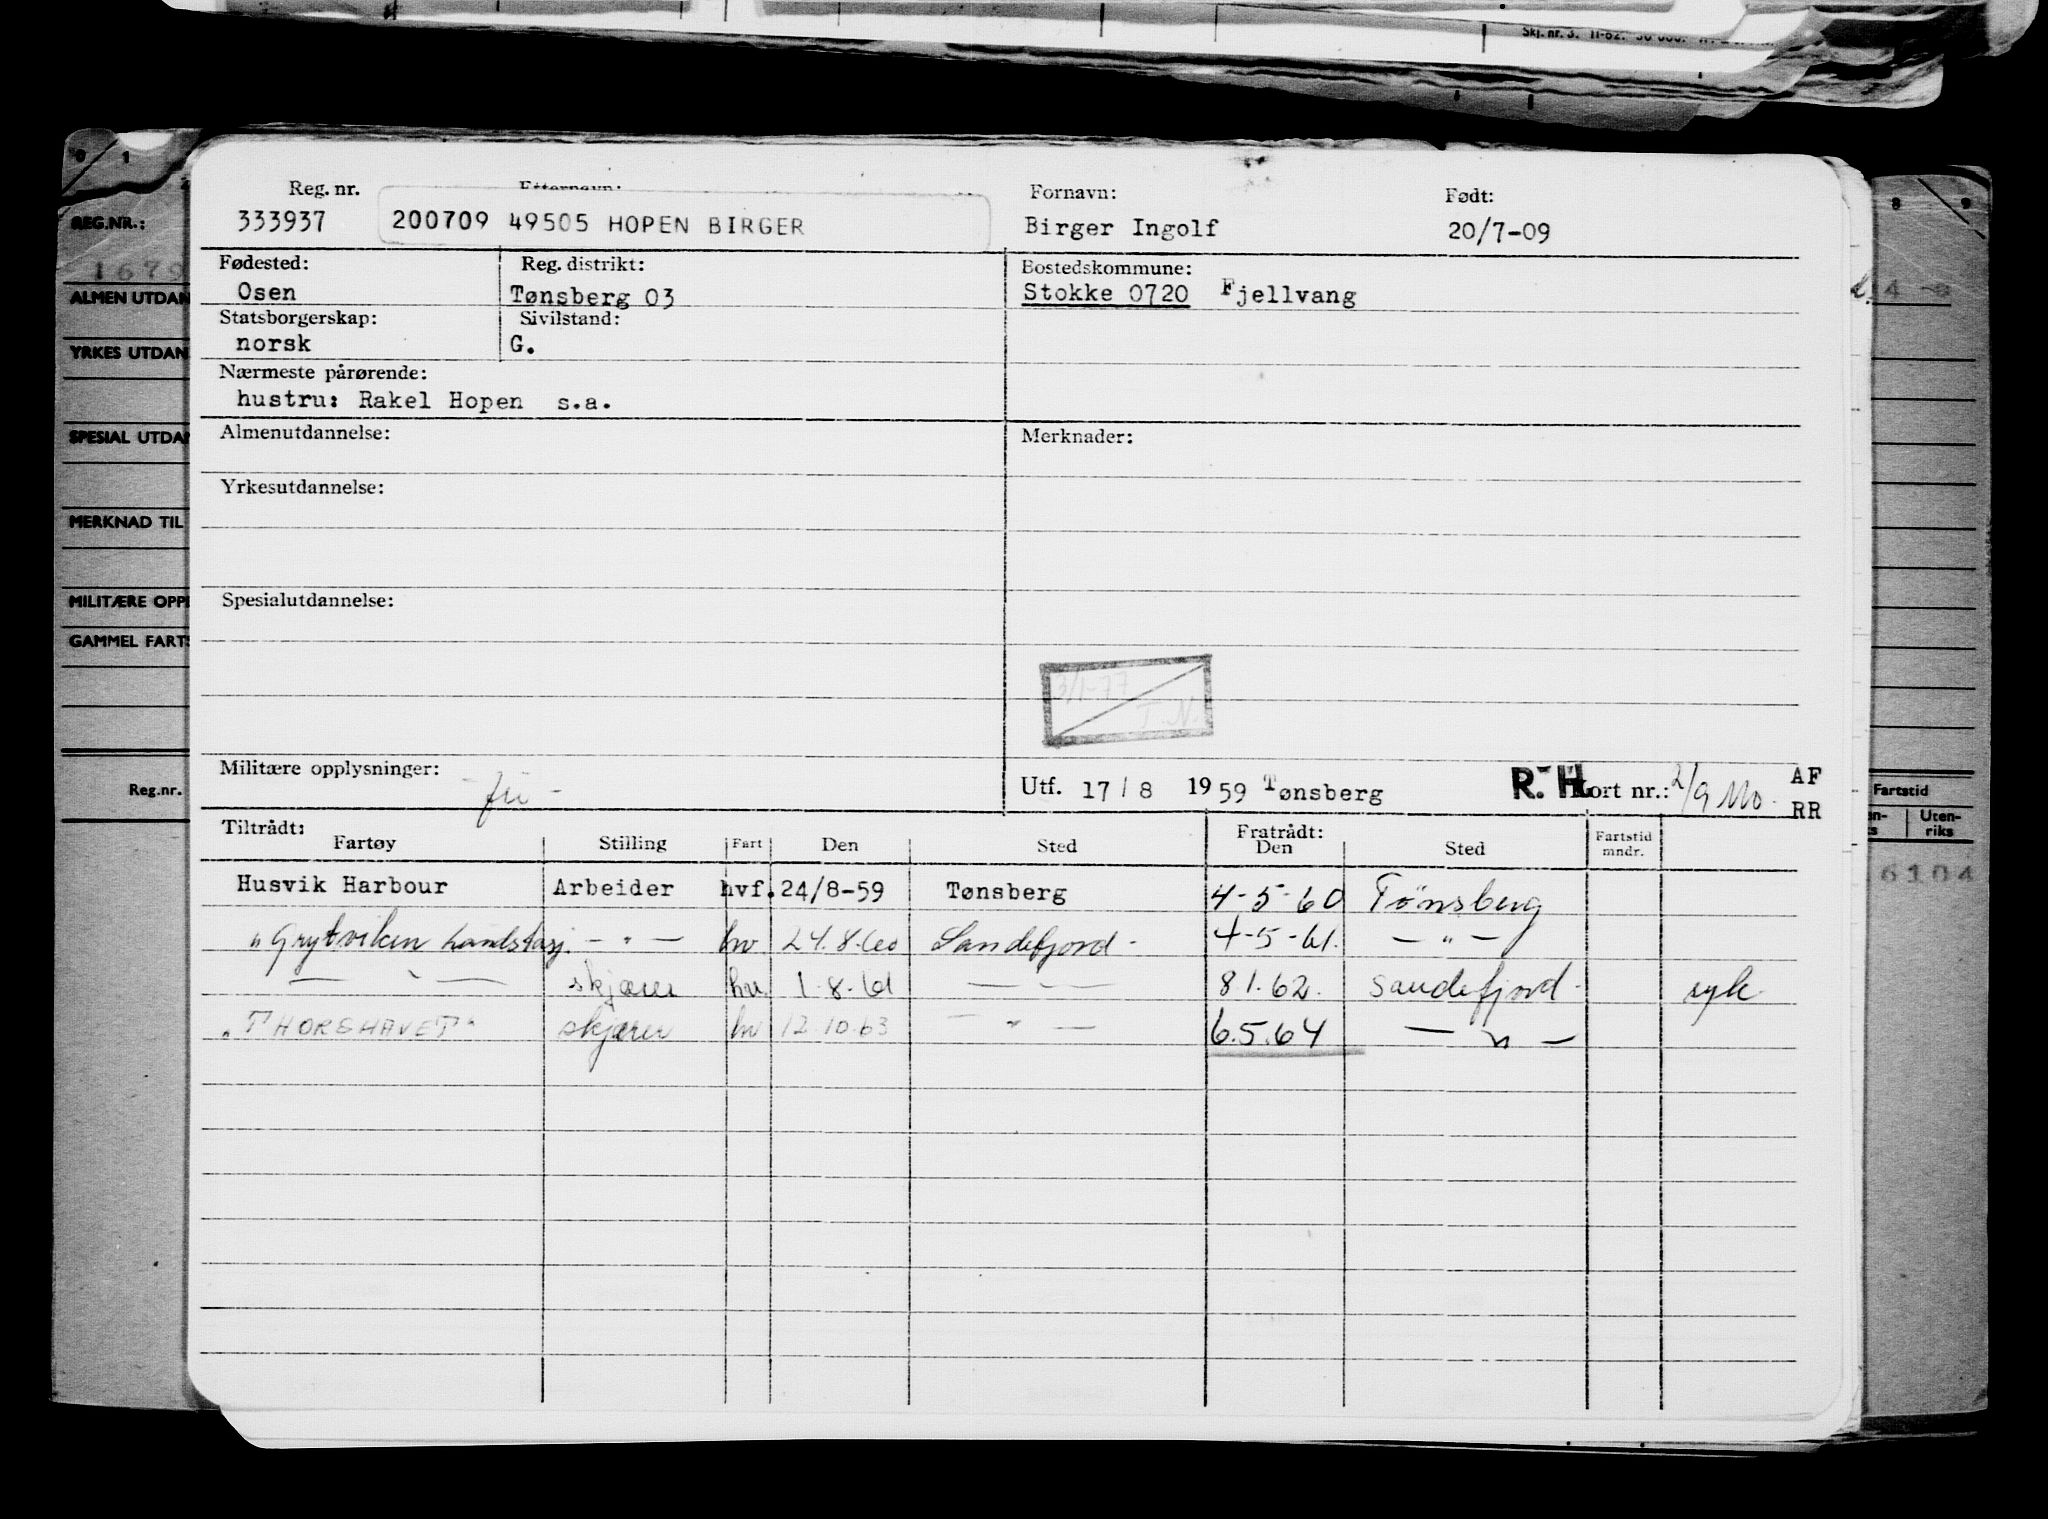 Skj. nr. 3. 11-62. 50 000.
0 1
8 9
REG.NR.:
1679
ALMEN UTDAN
YRKES UTDAN
SPESIAL UTDAN
MERKNAD TIL
MILITÆRE OPPL
GAMMEL FARTS
Reg.nr.
Reg. nr. Etternavn: Fornavn: Født:
333937 200709 49505 HOPEN BIRGER Birger Ingolf 20/7-09
Fødested: Reg. distrikt: Bostedskommune:
Osen Tønsberg 03 Stokke 0720 Fjellvang
Statsborgerskap: Sivilstand:
norsk G.
Nærmeste pårørende:
hustru: Rakel Hopen s.a.
Almenutdannelse: Merknader:
Yrkesutdannelse:
Spesialutdannelse:
3/1-77
T.N.
Militære opplysninger: Utf. 17/8 1959 Tønsberg R.H. Kort nr.: 2/9 AF
- fri - RR
Tiltrådt: Fratrådt:
Fartøy Stilling Fart Den Sted Den Sted Fartstid mndr.
Husvik Harbour Arbeider hvf. 24/8-59 Tønsberg 4-5-60 Tønsberg
"Grytviken landstasj. - " - hv 24.8.60 Sandefjord - 4-5-61. - " -
- " - skjærer hv. 1.8.61 - " - 8.1.62. Sandefjord - syk
"THORSHAVET" skjærer hv 12.10.63 - " - 6.5.64 - " -
Fartstid
Uten-
riks
6104